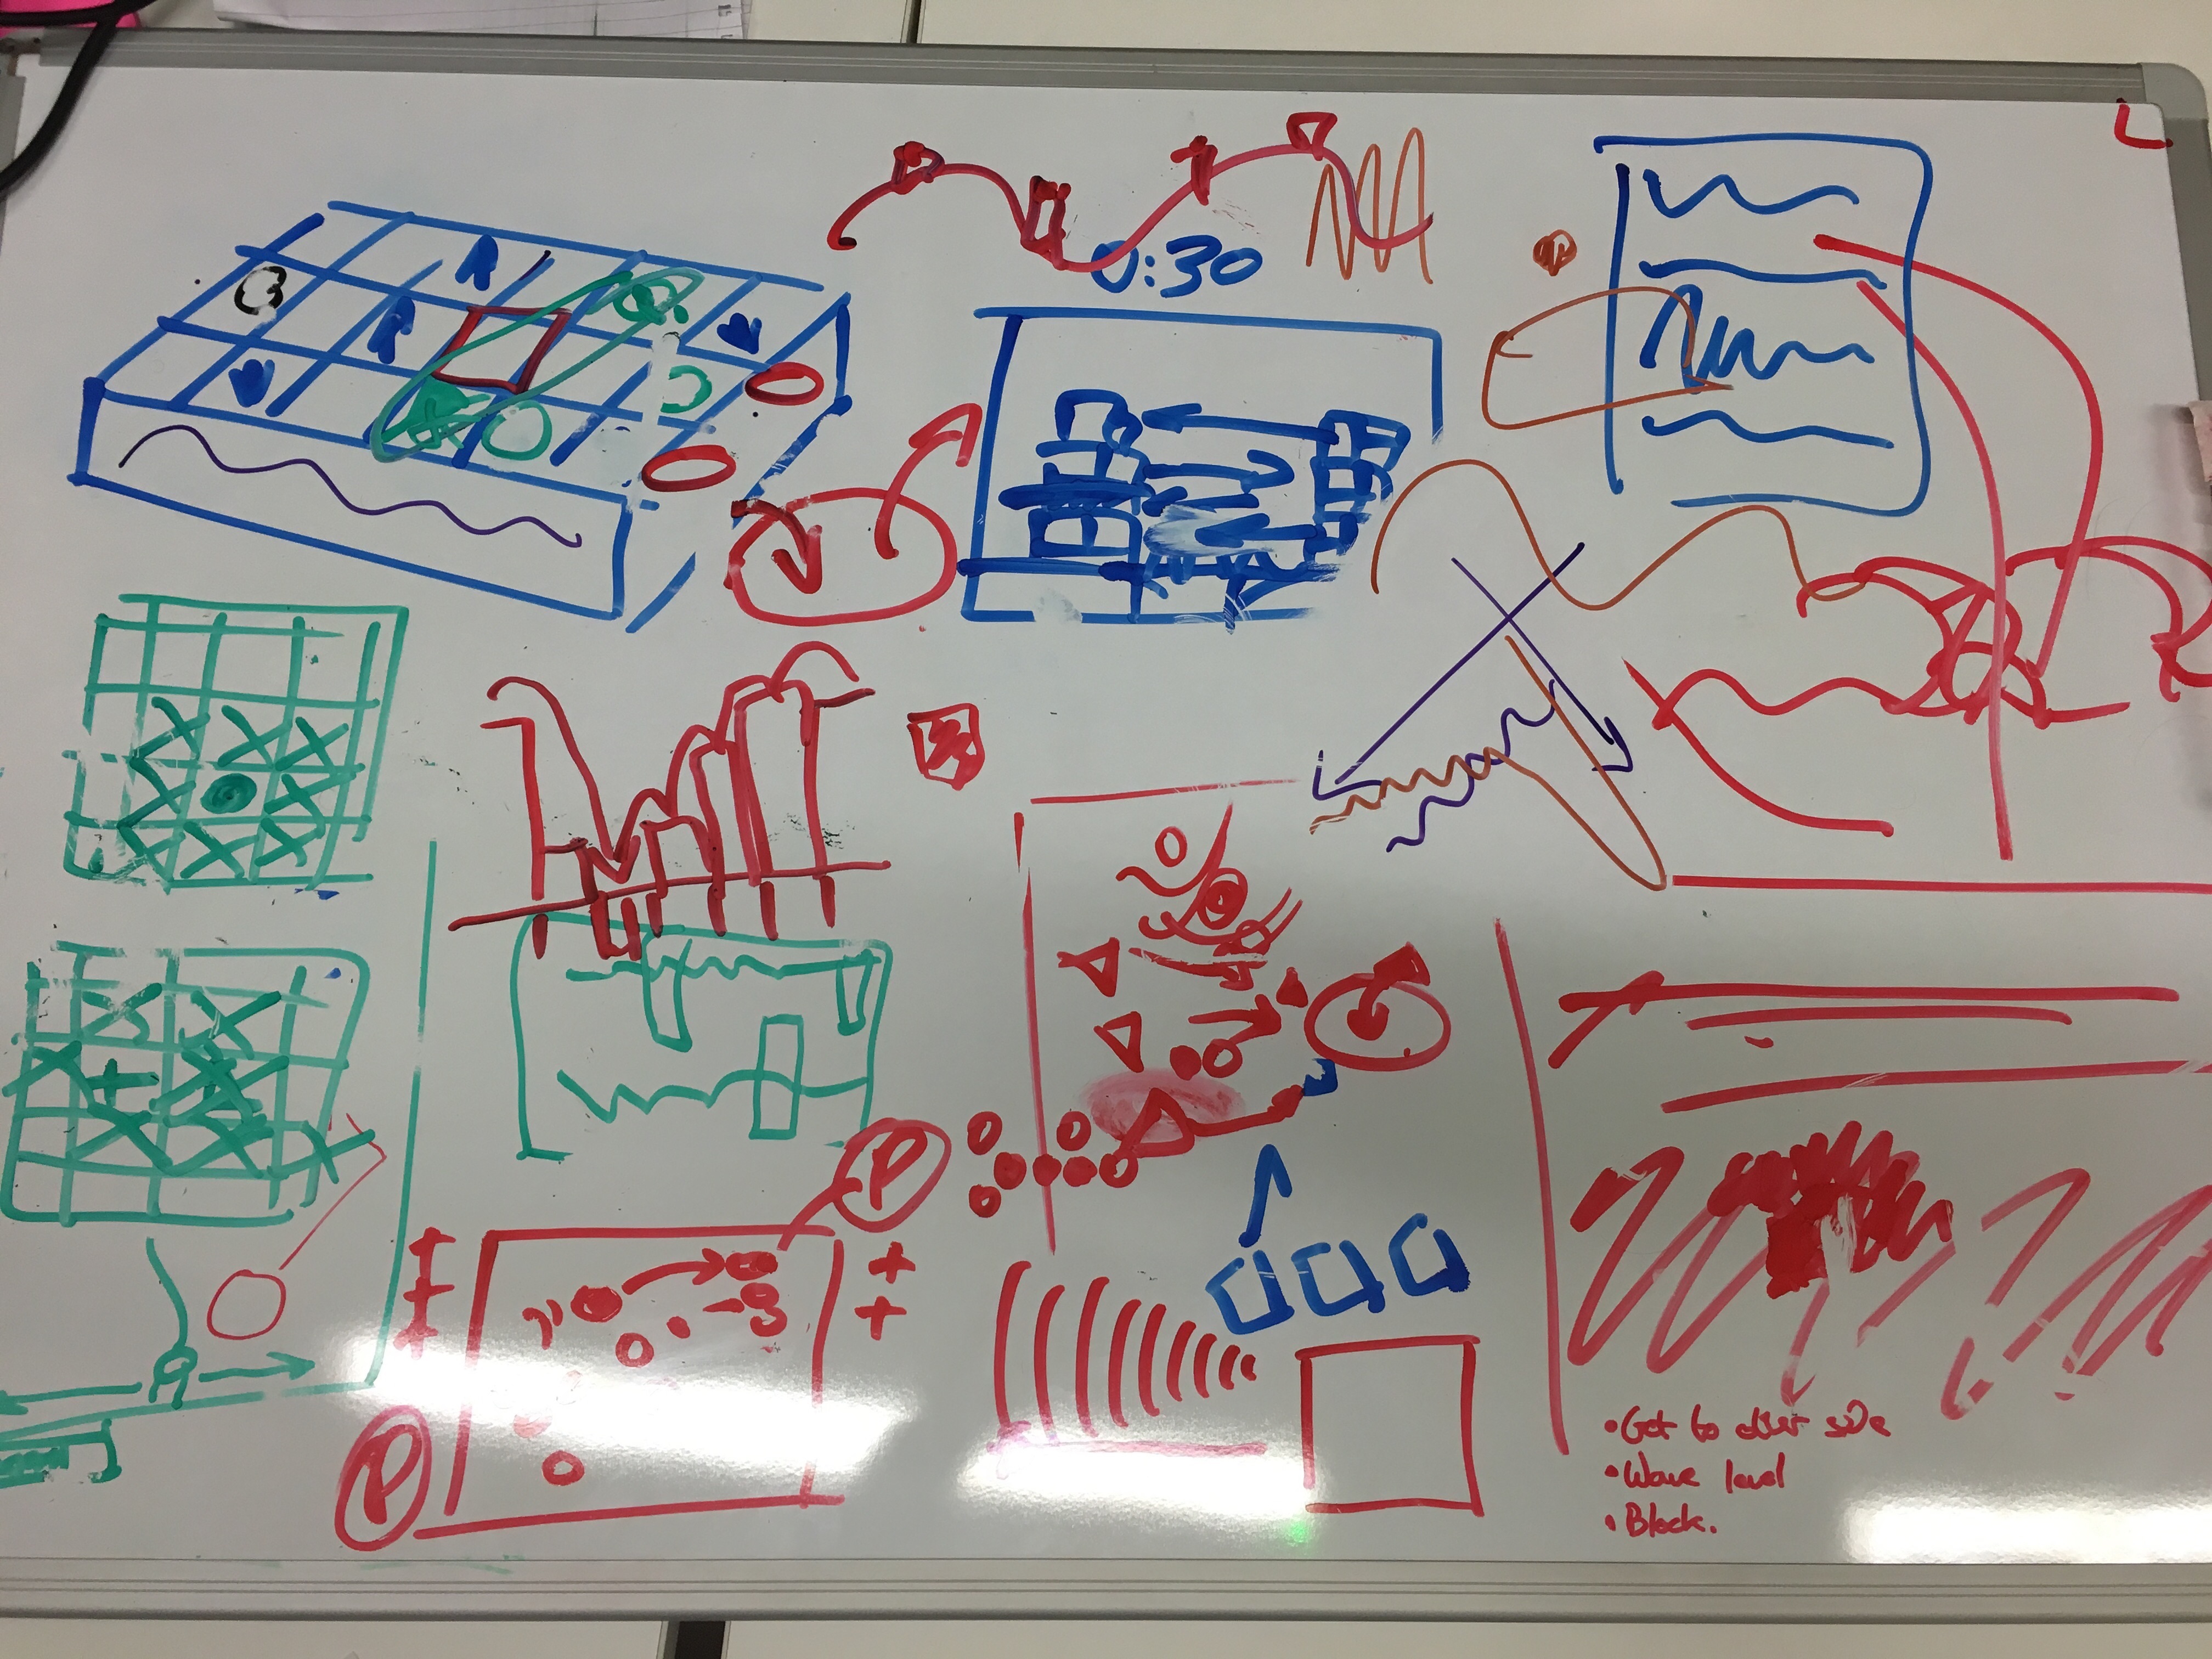 0:30
P
P
• Get to other side
• Wave level
• Block.